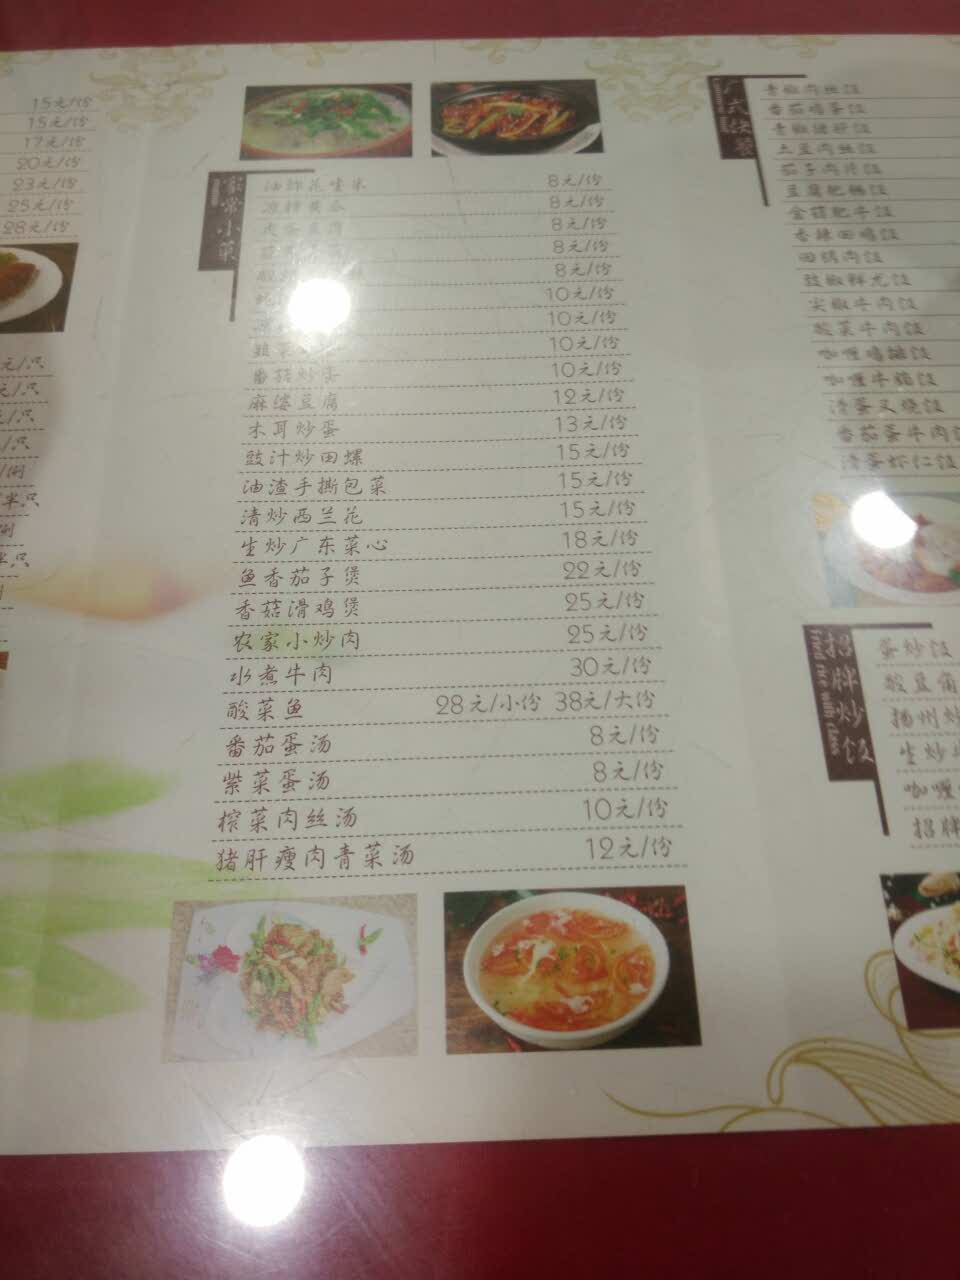 15元/份
15元/份
17元/份
20元/份
23元/份
25元/份
28元/份
元/只
元/只
元/只
元/只
半只
家常小菜
油炸花生米 8元/份
凉拌黄瓜 8元/份
8元/份
8元/份
8元/份
10元/份
10元/份
10元/份
番茄炒蛋 10元/份
麻婆豆腐 12元/份
木耳炒蛋 13元/份
豉汁炒田螺 15元/份
油渣手撕包菜 15元/份
清炒西兰花 15元/份
生炒广东菜心 18元/份
鱼香茄子煲 22元/份
香菇滑鸡煲 25元/份
农家小炒肉 25元/份
水煮牛肉 30元/份
酸菜鱼 28元/小份 38元/大份
番茄蛋汤 8元/份
紫菜蛋汤 8元/份
榨菜肉丝汤 10元/份
猪肝瘦肉青菜汤 12元/份
广式快餐
青椒肉丝饭
番茄鸡蛋饭
青椒猪肝饭
土豆肉丝饭
茄子肉片饭
豆腐肥肠饭
金菇肥牛饭
香辣田鸡饭
回锅肉饭
豉椒鲜尤饭
尖椒牛肉饭
酸菜牛肉饭
咖喱鸡排饭
咖喱牛腩饭
滑蛋叉烧饭
番茄蛋牛肉饭
滑蛋虾仁饭
招牌炒饭
Fried rice with class
蛋炒饭
酸豆角
扬州炒
生炒
咖喱
招牌